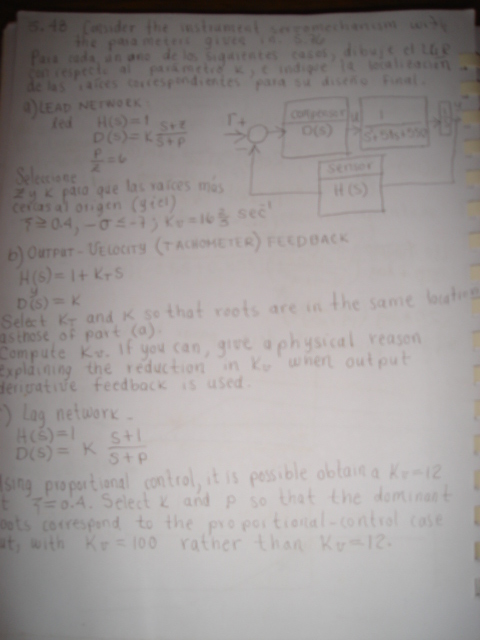 5.48 Consider the instrument servomechanism with
the parameters given in
Para cada uno de los siguientes casos, dibuje el LGR
con respecto al parámetro K, e indique la localización
de las raíces correspondientes para su diseño final.
a) LEAD NETWORK:
H(s)=1
D(s)=K (s+z)/(s+p)
p/z = 6
r +
compensator
D(s)
u
1
sensor
H(s)
Seleccione
z y K para que las raíces más
cerías al origen
ζ ≥ 0.4, -σ ≤ -7, Kv = 16 2/3 sec⁻¹
b) OUTPUT-VELOCITY (TACHOMETER) FEEDBACK
H(s) = 1 + KT s
y
D(s) = K
Select KT and K so that roots are in the same location
as those of part (a).
Compute Kv. If you can, give a physical reason
explaining the reduction in Kv when output
derivative feedback is used.
c) Lag network.
H(s)=1
D(s) = K (s+1)/(s+p)
Using proportional control, it is possible obtain a Kv=12
at ζ=0.4. Select K and p so that the dominant
roots correspond to the proportional-control case
but, with Kv = 100 rather than Kv=12.